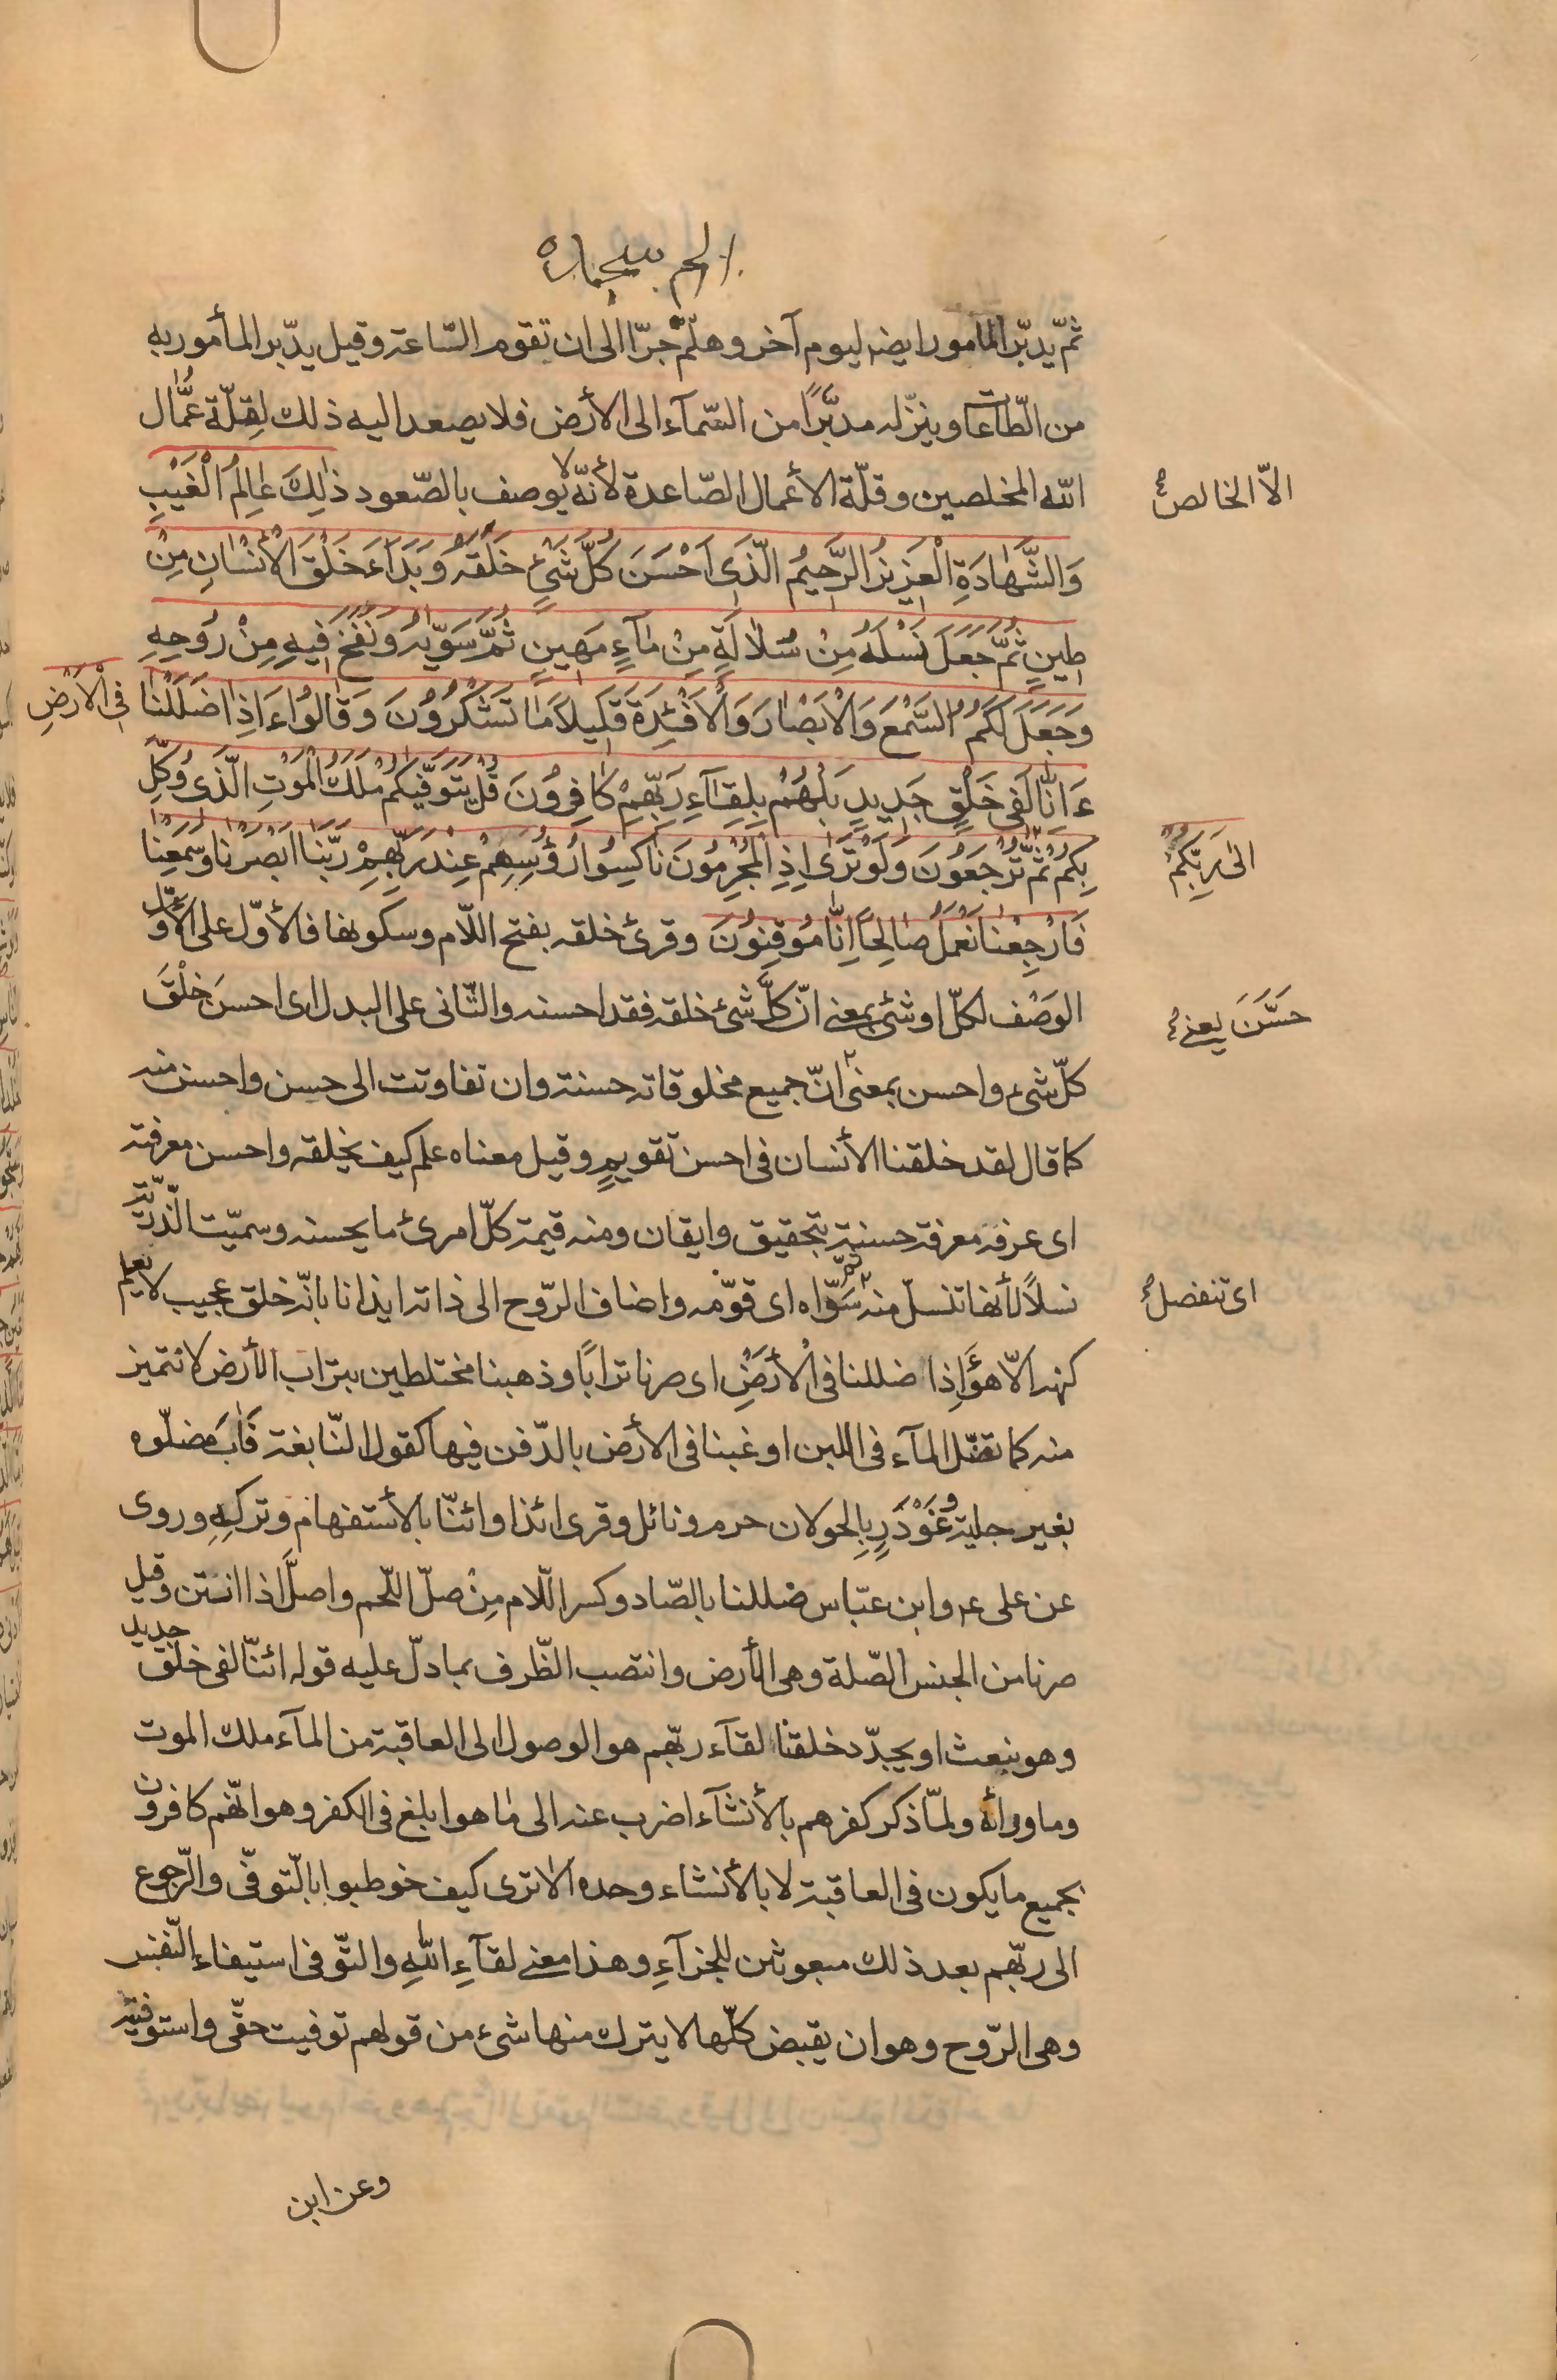 الم سجده
ثمّ يدبّر المامور ايضا ليوم آخر وهلّم جرّا الى ان تقوم السّاعة وقيل يدّبر المأمور به
من الطّاعات وينزّله مدبّرًا من السّمآء الى الأرض فلا يصعد اليه ذلك لِقلّة عُمّال
الله المخلصين وقلّة الأعمال الصّاعدة لأنّه لا يوصف بالصّعود ذٰلِكَ عٰالِمُ الْغَيْبِ
الاّ الخالص
وَالشَّهٰادَةِ الْعَزِيزُ الرَّحِيمُ الَّذى اَحْسَنَ كُلَّ شَىْءٍ خَلَقَهُ وَبَدَاَءَ خَلْقَ الْأنْسٰانِ مِنْ
طِينٍ ثُمَّ جَعَلَ نَسْلَهُ مِنْ سُلاٰلَةٍ مِنْ مٰآءٍ مَهِينٍ ثُمَّ سَوّيٰهُ وَنَفَخَ فِيهِ مِنْ رُوحِهِ
وَجَعَلَ لَكُمُ السَّمْعَ وَالْاَبْصٰارَ وَالْاَفْئِدَةَ قَلِيلاً مٰا تَشْكُرُونَ وَقٰالُوا ءَاِذٰا ضَلَلْنٰا فِى الْاَرْضِ
ءَاِنّٰا لَفى خَلْقٍ جَدِيدٍ بَلْ هُمْ بِلِقٰآءِ رَبِّهِمْ كٰافِرُونَ قُلْ يَتَوَفّيٰكُمْ مَلَكُ الْمَوْتِ الَّذى وُكِّلَ
بِكُمْ ثُمَّ تُرْجَعُونَ وَلَوْ تَرٰى اِذِ الْمُجْرِمُونَ نٰاكِسُوا رُؤُسِهِمْ عِنْدَ رَبِّهِمْ رَبَّنٰا اَبْصَرْنٰا وَسَمِعْنٰا
الىٰ رَبِّكُمْ
فَارْجِعْنٰا نَعْمَلْ صٰالِحًا اِنّٰا مُوقِنُونَ وقرئ خلقه بفتح اللّام وسكونها فالأوّل على الأوّل
الوَصْف لكلّ او شئ بمعنى انّ كلَّ شئ خلقه فقد احسنه والثّانى على البدل اى احسنَ خلْقَ
حَسَّنَ يعنى
كلّ شىء واحسن بمعنى انّ جميع مخلوقاته حسنة وان تفاوتت الى حسن واحسن منه
كما قال لقد خلقنا الأنسان فى احسن تقويمٍ وقيل معناه علم كيف يخلقه واحسن معرفته
اى عرفه معرفة حسنة بتحقيق وايقان ومنه قيمة كلّ امرئ ما يحسنه وسميّت الذّريّة
نسلاً لأنها تنسلّ منه ثمّ سَوَّاه اى قوّمه واضاف الرّوح الى ذاته ايذانا بانّه خلق عجيب لا يعلم
اى تنفصل
كنهه الاّ هو أَإذا ضللنا فى الْأرْضِ اى صرنا ترابًا وذهبنا مختلطين بتراب الأرض لا نتميز
منه كما تضّل المآء فى اللبن او غبنا فى الأرض بالدّفن فيها كقول النّابغة فَآبَ مضلّوه
بغير جلية وغُوْدِرَ بِالجولان حزم ونائل وقرى ائذا وائنّا بالأستفهام وتركِهِ وروى
عن على ع وابن عبّاس ضللنا بالصّاد وكسر اللّام مِنْ صلّ اللّحم واصلَّ اذا انتن وقيل
صرنا من الجنس الصّلة وهى الأرض وانتصب الظّرف بما دلّ عليه قوله ائنّا لفى خلق جديد
وهو نبعث او يجدّد خلقنا لقآء ربّهم هو الوصول الى العاقبة من المآء ملك الموت
وما ورأه ولمّا ذكر كفرهم بالأنشآء اضرب عنه الى مٰا هو ابلغ فى الكفر وهو انّهم كافرون
بجميع ما يكون فى العاقبة لا بالأنشاء وحده الاٰ ترى كيف خوطبوا بالتّوفّى والرّجوع
الى ربّهم بعد ذلك مبعوثين للجزآءِ وهذا معنى لقآءِ اللهِ والتّوفى استيفاء النّفس
وهى الرّوح وهو ان يقبض كلّها لا يترك منها شىء من قولهم توفيت حقّى واستوفيته
وعن ابن